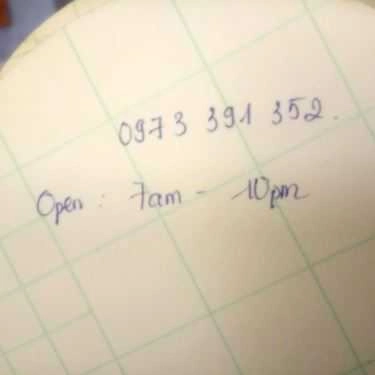 0973 391 352.
Open : 7am - 10pm